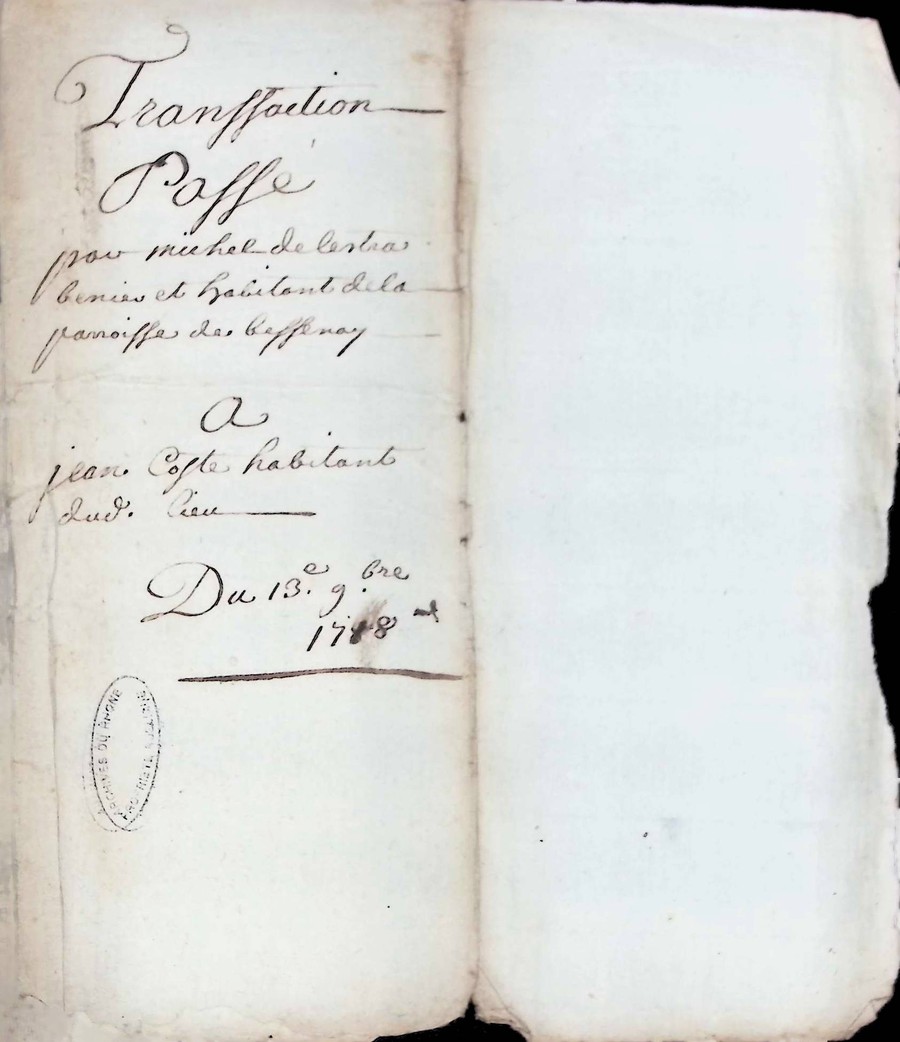 Transsaction
Passé
par michel de lestra
benier et habitant de la
parroisse de bessenay
A
jean Coste habitant
dud. lieu
Du 13.e 9.bre
ARCHIVES DU RHONE
PROPRIETE PUBLIQUE